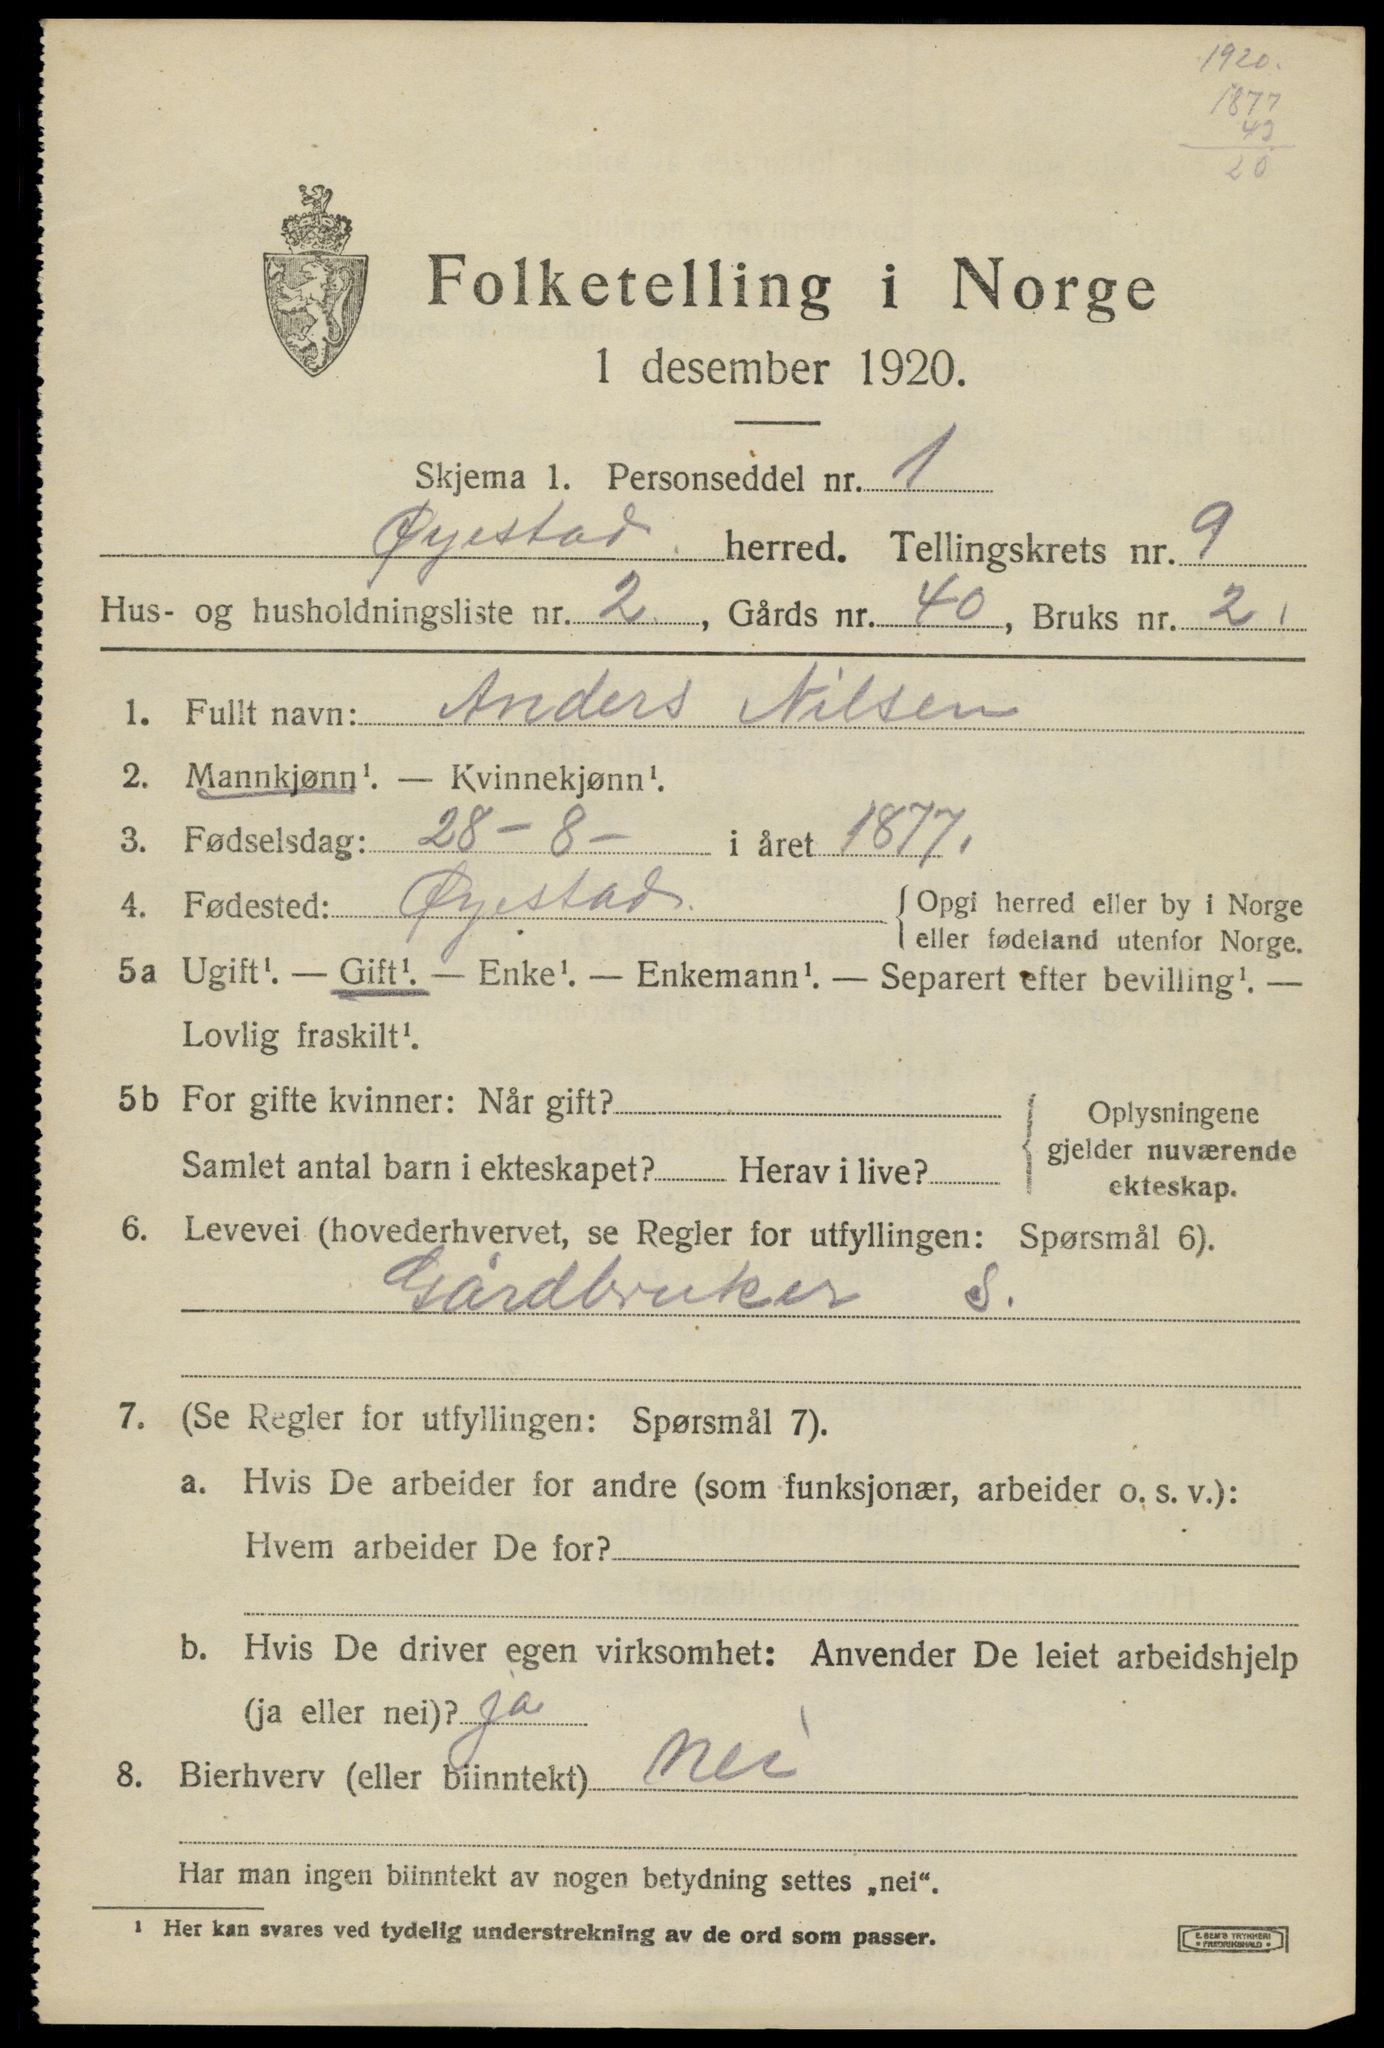 1920.
1877
43
20
Folketelling i Norge
1 desember 1920.
Skjema 1. Personseddel nr. 1
Øyestad herred. Tellingskrets nr. 9
Hus- og husholdningsliste nr. 2, Gårds nr. 40, Bruks nr. 2
1. Fullt navn: Anders Nilsen
2. Mannkjønn¹. — Kvinnekjønn¹.
3. Fødselsdag: 28 - 8 - i året 1877.
4. Fødested: Øyestad. { Opgi herred eller by i Norge
eller fødeland utenfor Norge.
5a Ugift¹. — Gift¹. — Enke¹. — Enkemann¹. — Separert efter bevilling¹. —
Lovlig fraskilt¹.
5b For gifte kvinner: Når gift?
Samlet antal barn i ekteskapet? Herav i live?
Oplysningene
gjelder nuværende
ekteskap.
6. Levevei (hovederhvervet, se Regler for utfyllingen: Spørsmål 6).
Gårdbruker S.
7. (Se Regler for utfyllingen: Spørsmål 7).
a. Hvis De arbeider for andre (som funksjonær, arbeider o. s. v.):
Hvem arbeider De for?
b. Hvis De driver egen virksomhet: Anvender De leiet arbeidshjelp
(ja eller nei)? ja
8. Bierhverv (eller biinntekt) Nei
Har man ingen biinntekt av nogen betydning settes „nei“.
¹ Her kan svares ved tydelig understrekning av de ord som passer.
E. SEM'S TRYKKERI
• FREDRIKSHALD •